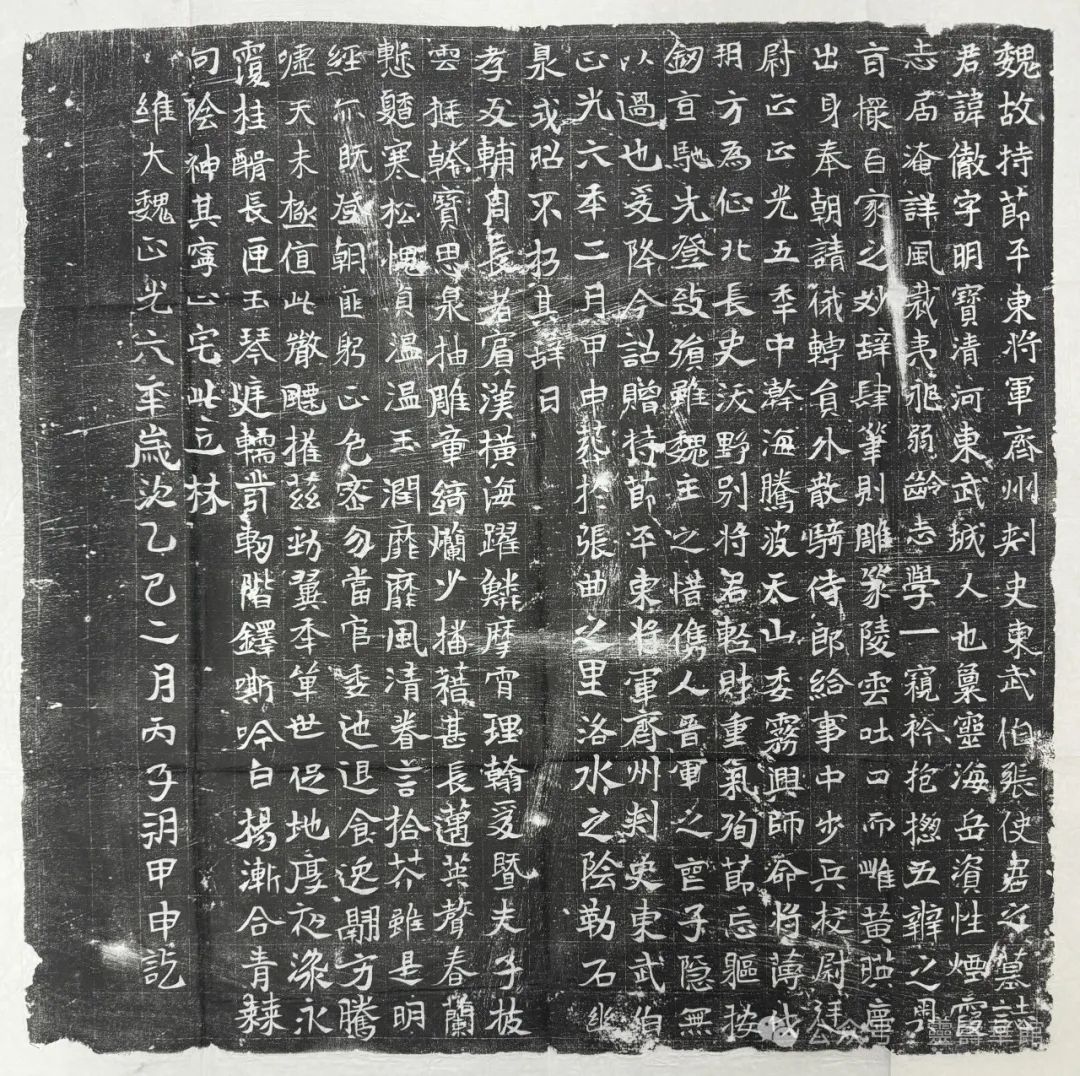 魏故持節平東將軍齊州刺史東武伯張使君之墓誌
君諱儆字明寶清河東武城人也稟靈海岳資性煙霞
志局淹詳風裁夷 弱齡志學一窺衿抱揔五辯之
百家之妙辞肆筆則雕篆陵雲吐口而雌黄
出身奉朝請俄轉負外散騎侍郎給事中步兵校尉拜
尉正正光五年中瀚海騰波天山委霧興師命將薄伐
朔方為征北長史 野别將君輕財重氣殉節忘軀按
釼亘馳先登致殞雖魏主之惜儁人晋軍之 子隐無
以過也爰降今詔贈持節平東將軍齊州刺史東武伯
正光六年二月甲申葬扵張曲之里洛水之陰勒石幽
泉或昭不朽其辞曰
孝友輔周長者賔漢横海躍鱗摩霄理翰爰暨夫子披
雲挺 寶思泉抽雕章綺爛少播藉甚長邁英聲春蘭
寒松愧貞温温玉潤靡靡風清眷言拾芥雖是明
經亦既 朝匪躬正色密勿當官委迆退食逸翮方騰
天未極值此 摧兹勁翼年 世促地厚夜深永
覆桂醑長匣玉琴庭轜 軔階鐸嘶吟白楊漸合青
向陰神其寧止宅此丘林
維大魏正光六年歲次乙巳二月丙子朔甲申訖
公众号·靈壽華館